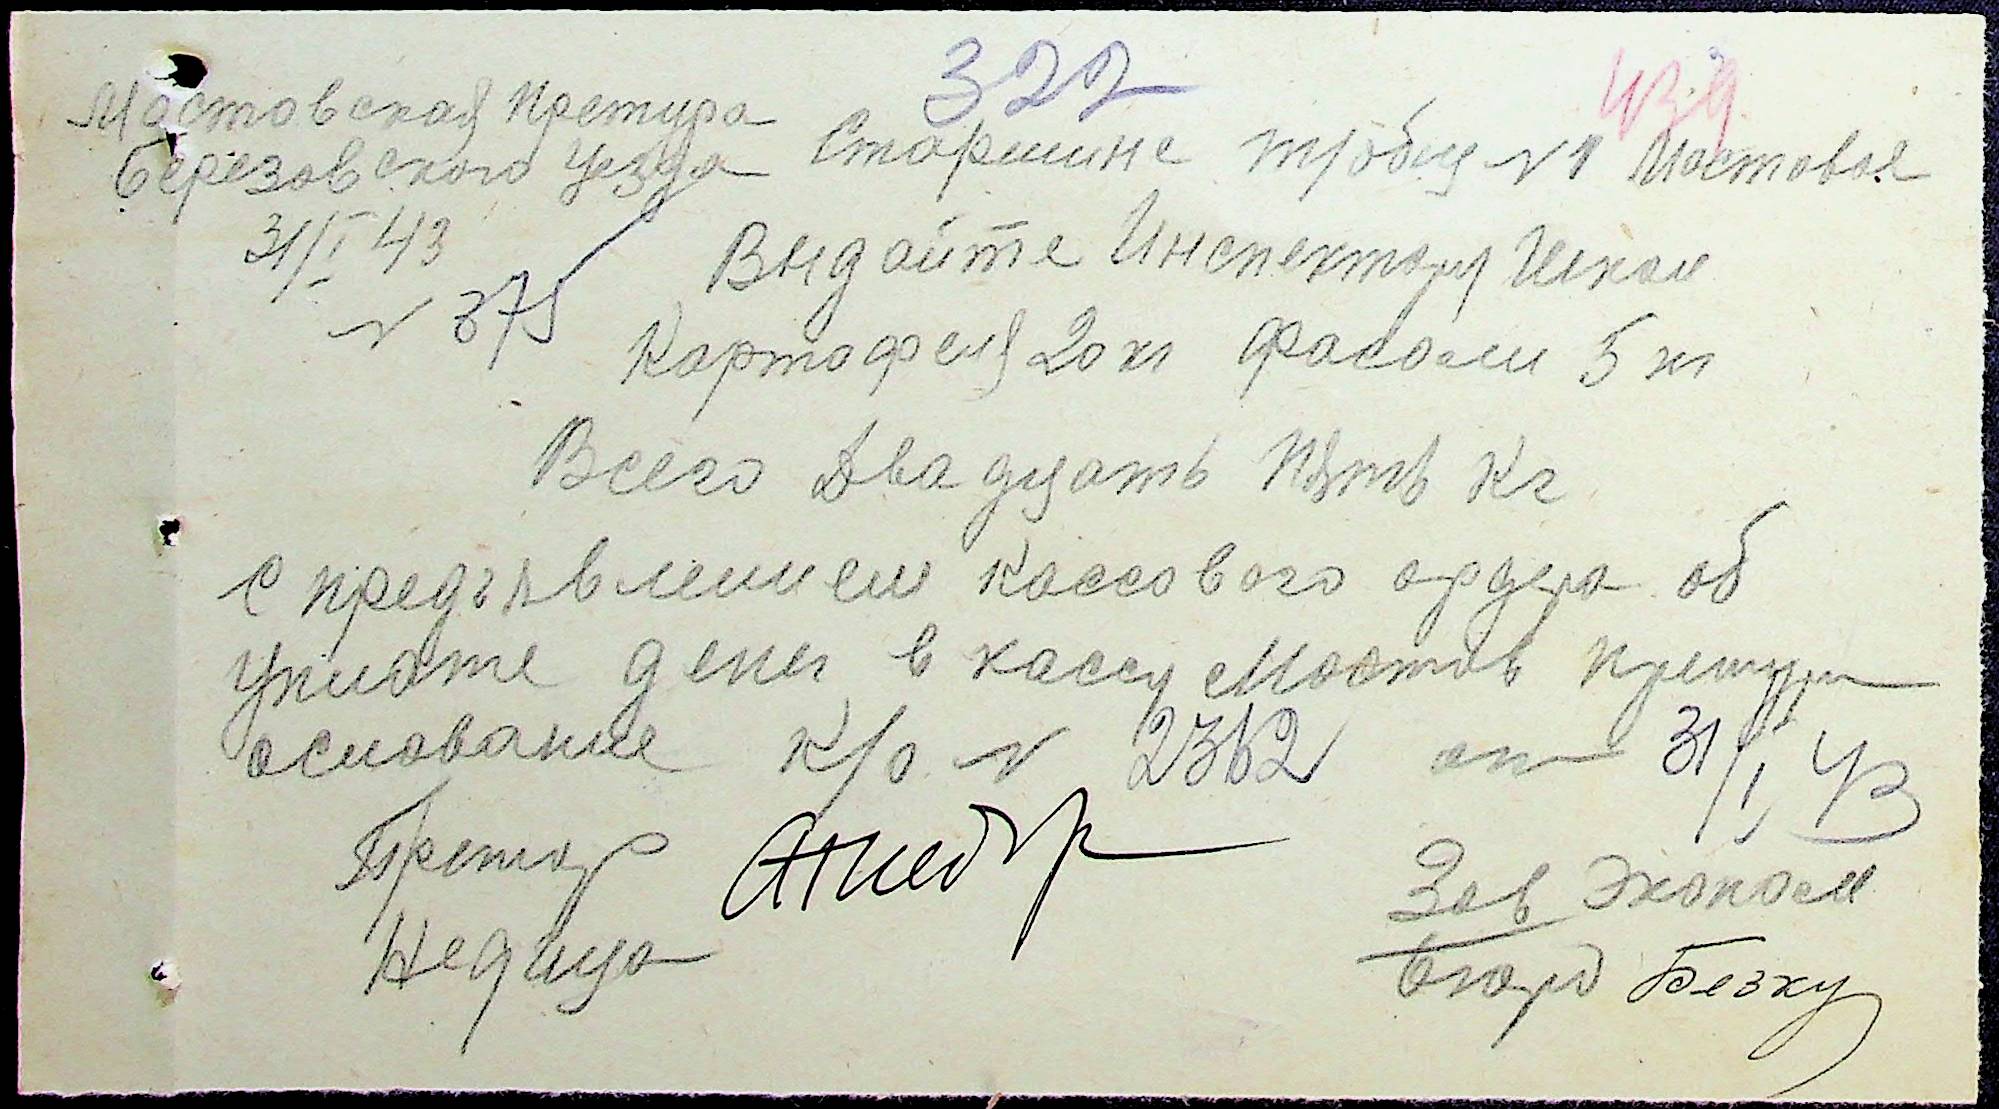 322
439
Мостовская Претура
Березовского уезда
31/I 43
N 375
Старшине тр/общ N 1 Мостовое
Выдайте Инспектору Школ
Картофеля 20 кг Фасоли 5 кг
Всего Двадцать Пять Кг
с предъявлением кассового ордера об
уплате денег в кассу Мостов претуры
основание К/о N 2362 от 31/I 43
Претор
Недица
Зав Эконом
Бюро Безку